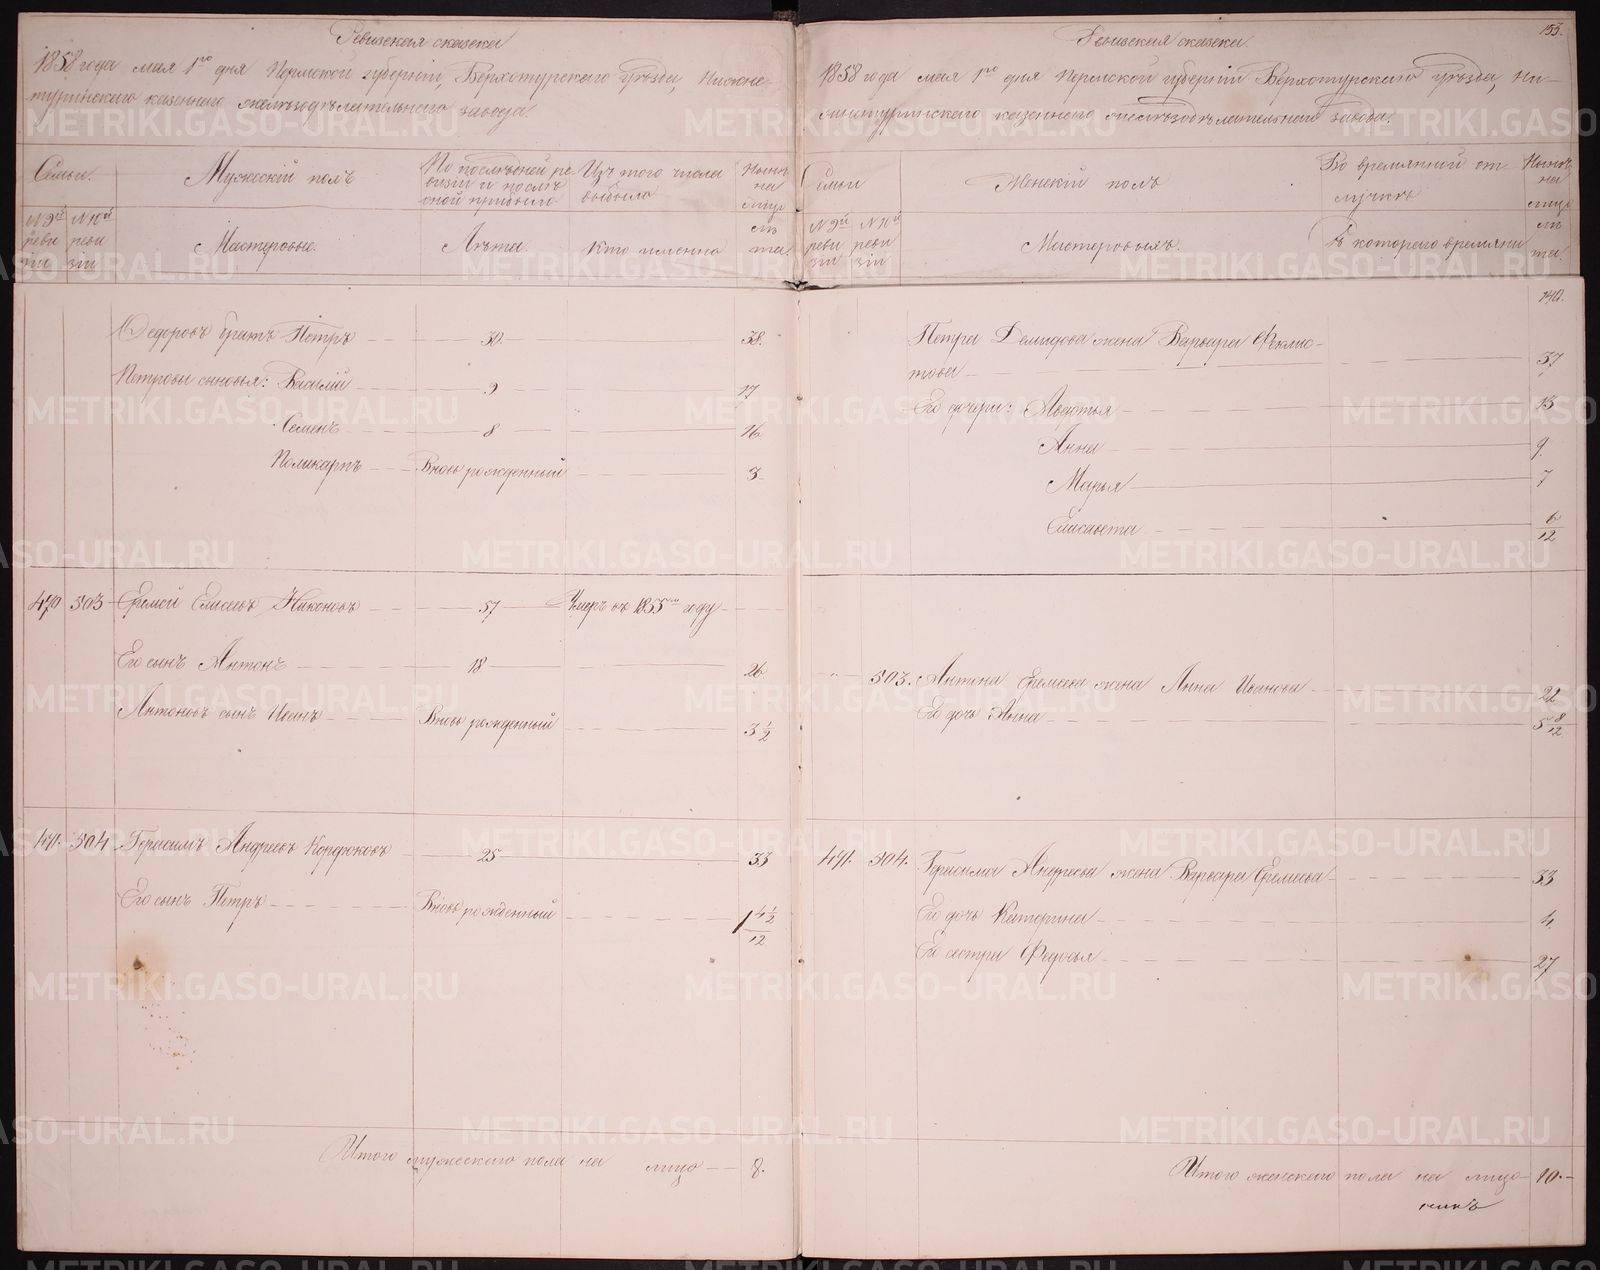 Ревизская сказка
1858 года мая 1го дня Пермской губернiи, Верхотурского уѣзда, Нижне-
туринского казенного желѣзодѣлательного завода.
Семьи.
Мужескiй полъ
По послѣдней ре-
визiи и послѣ
оной прибыло
Изъ того числа
выбыло
Нынѣ
на
лицо
№ 9й
реви
зiи
№ 10й
реви
зiи
Мастеровые.
Лѣта.
Кто именно
лѣ
та.
Федоровъ братъ Петръ 30. 38.
Петровы сыновья: Василiй 9 17
Семенъ 8 16
Поликарпъ Вновь рожденный 3
470 503 Еремей Елисеевъ Наконовъ 57 Умеръ въ 1855м году
Его сынъ Антонъ 18 26
Антоновъ сынъ Иванъ Вновь рожденный 3 1/2
471. 504 Герасимъ Андреевъ Кордюковъ 25 33
Его сынъ Петръ Вновь рожденный 1 4 1/2 / 12
Итого мужеского пола на лицо 8.
153.
Ревизская сказка.
1858 года мая 1го дня Пермской губернiи Верхотурского уѣзда, Ни-
жнетуринского казенного желѣзодѣлательного завода.
Семьи
Женскiй полъ
Во временной от-
лучкѣ
Нынѣ
на
лицо
№ 9й
реви
зiи
№ 10й
реви
зiи
Мастеровыхъ.
Съ которого времяни
лѣ
та.
140.
Петра Демидова жена Варвара Феклис-
това 37
Его дочери: Авдотья 13
Анна 9.
Марья 7
Елисавета 6/12
503. Антона Еремеева жена Анна Иванова 22
Его дочь Анна 5 8/12
471. 504. Герасима Андреева жена Варвара Еремеева 33
Его дочь Катерина 4.
Его сестра Федосья 27
Итого женского пола на лицо 10.
METRIKI.GASO-URAL.RU